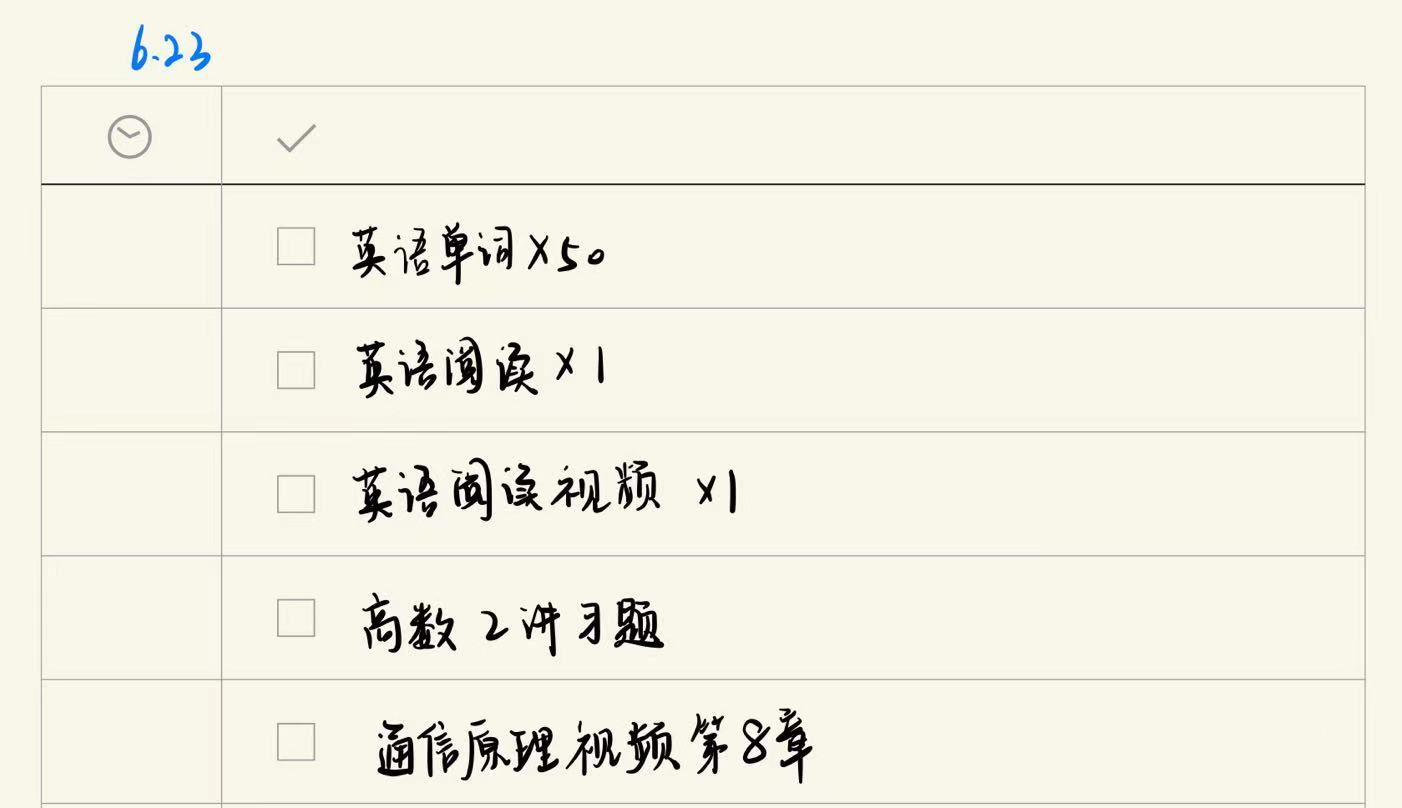 6.23
英语单词×50
英语阅读×1
英语阅读视频 ×1
高数 2讲习题
通信原理视频第8章